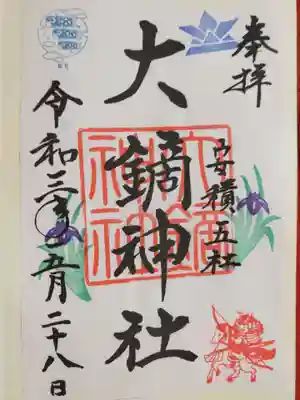 奉拝
安積五社
大鏑神社
令和三年五月二十八日